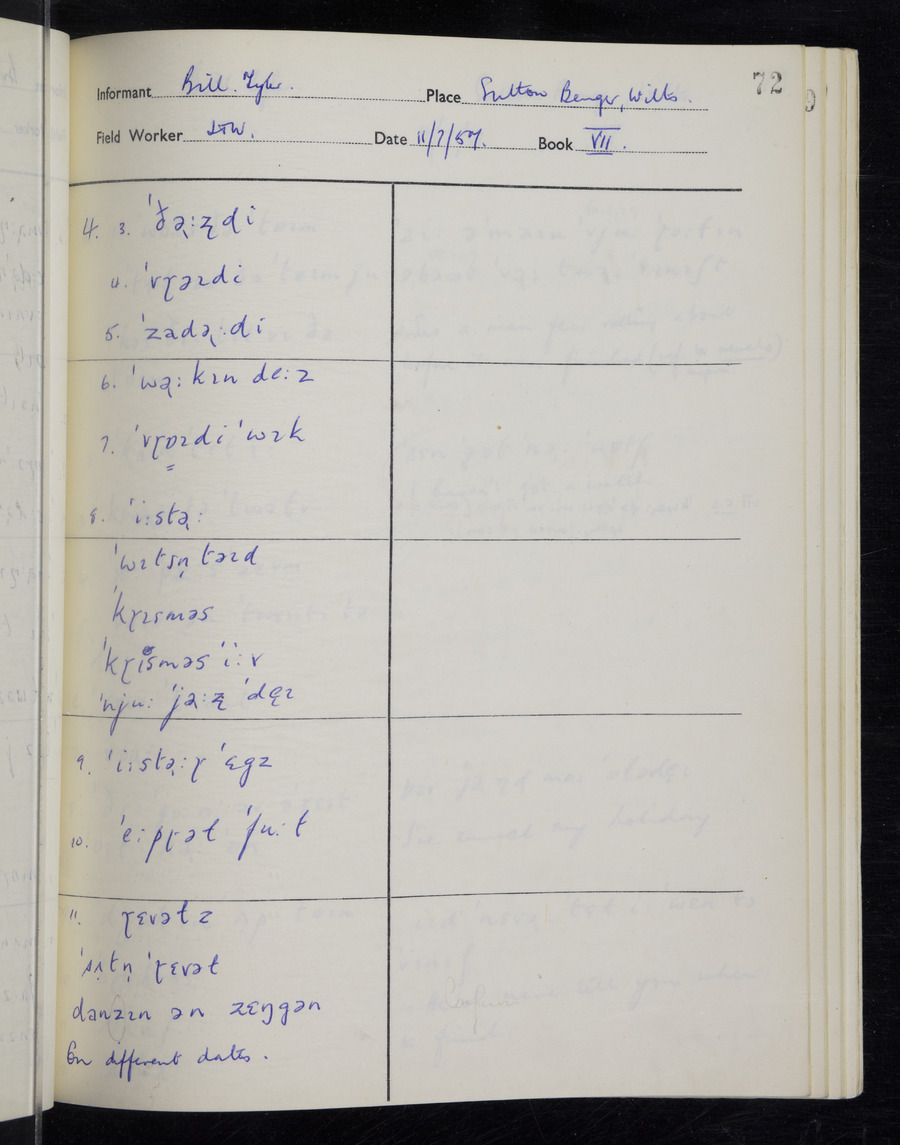 72
Informant Bill. Tyler. Place Sutton Benger, Wilts.
Field Worker Date 11/7/57. Book VII.
4. 3. ˈðəɻːʐdi
4. ˈvɽəɪdi
5. ˈzadəɻːdi
6. ˈwəɻːkɪn deːz
7. ˈvɽɒɪdi ˈwɪk
8. ˈiːstəɻː
ˈwɪtsn̩təɪd
ˈkɽɪsməs
ˈkɽisməs ˈiːv
ˈnjuː ˈjəɻːʐ ˈdɛɪ
9. ˈiːstəɻːɽ ˈɛgz
10. ˈeːpɽət ˈfuːt
11. ɽɛvətz
ˈsʌtn̩ ˈɽɛvət
danzɪn ən zɛŋgən
On different dates.